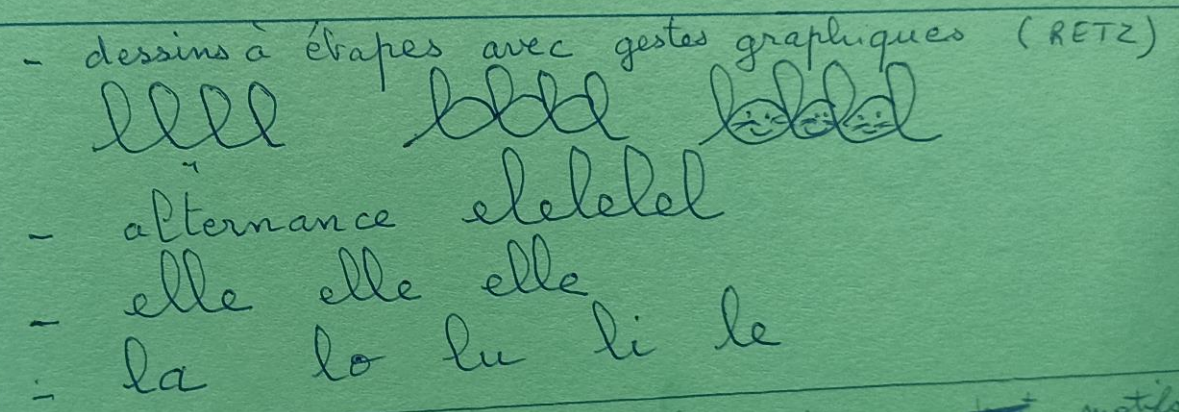 - dessins à étapes avec gestes graphiques (RETZ)
llll
- alternance elelelel
- elle elle elle
- la lo lu li le